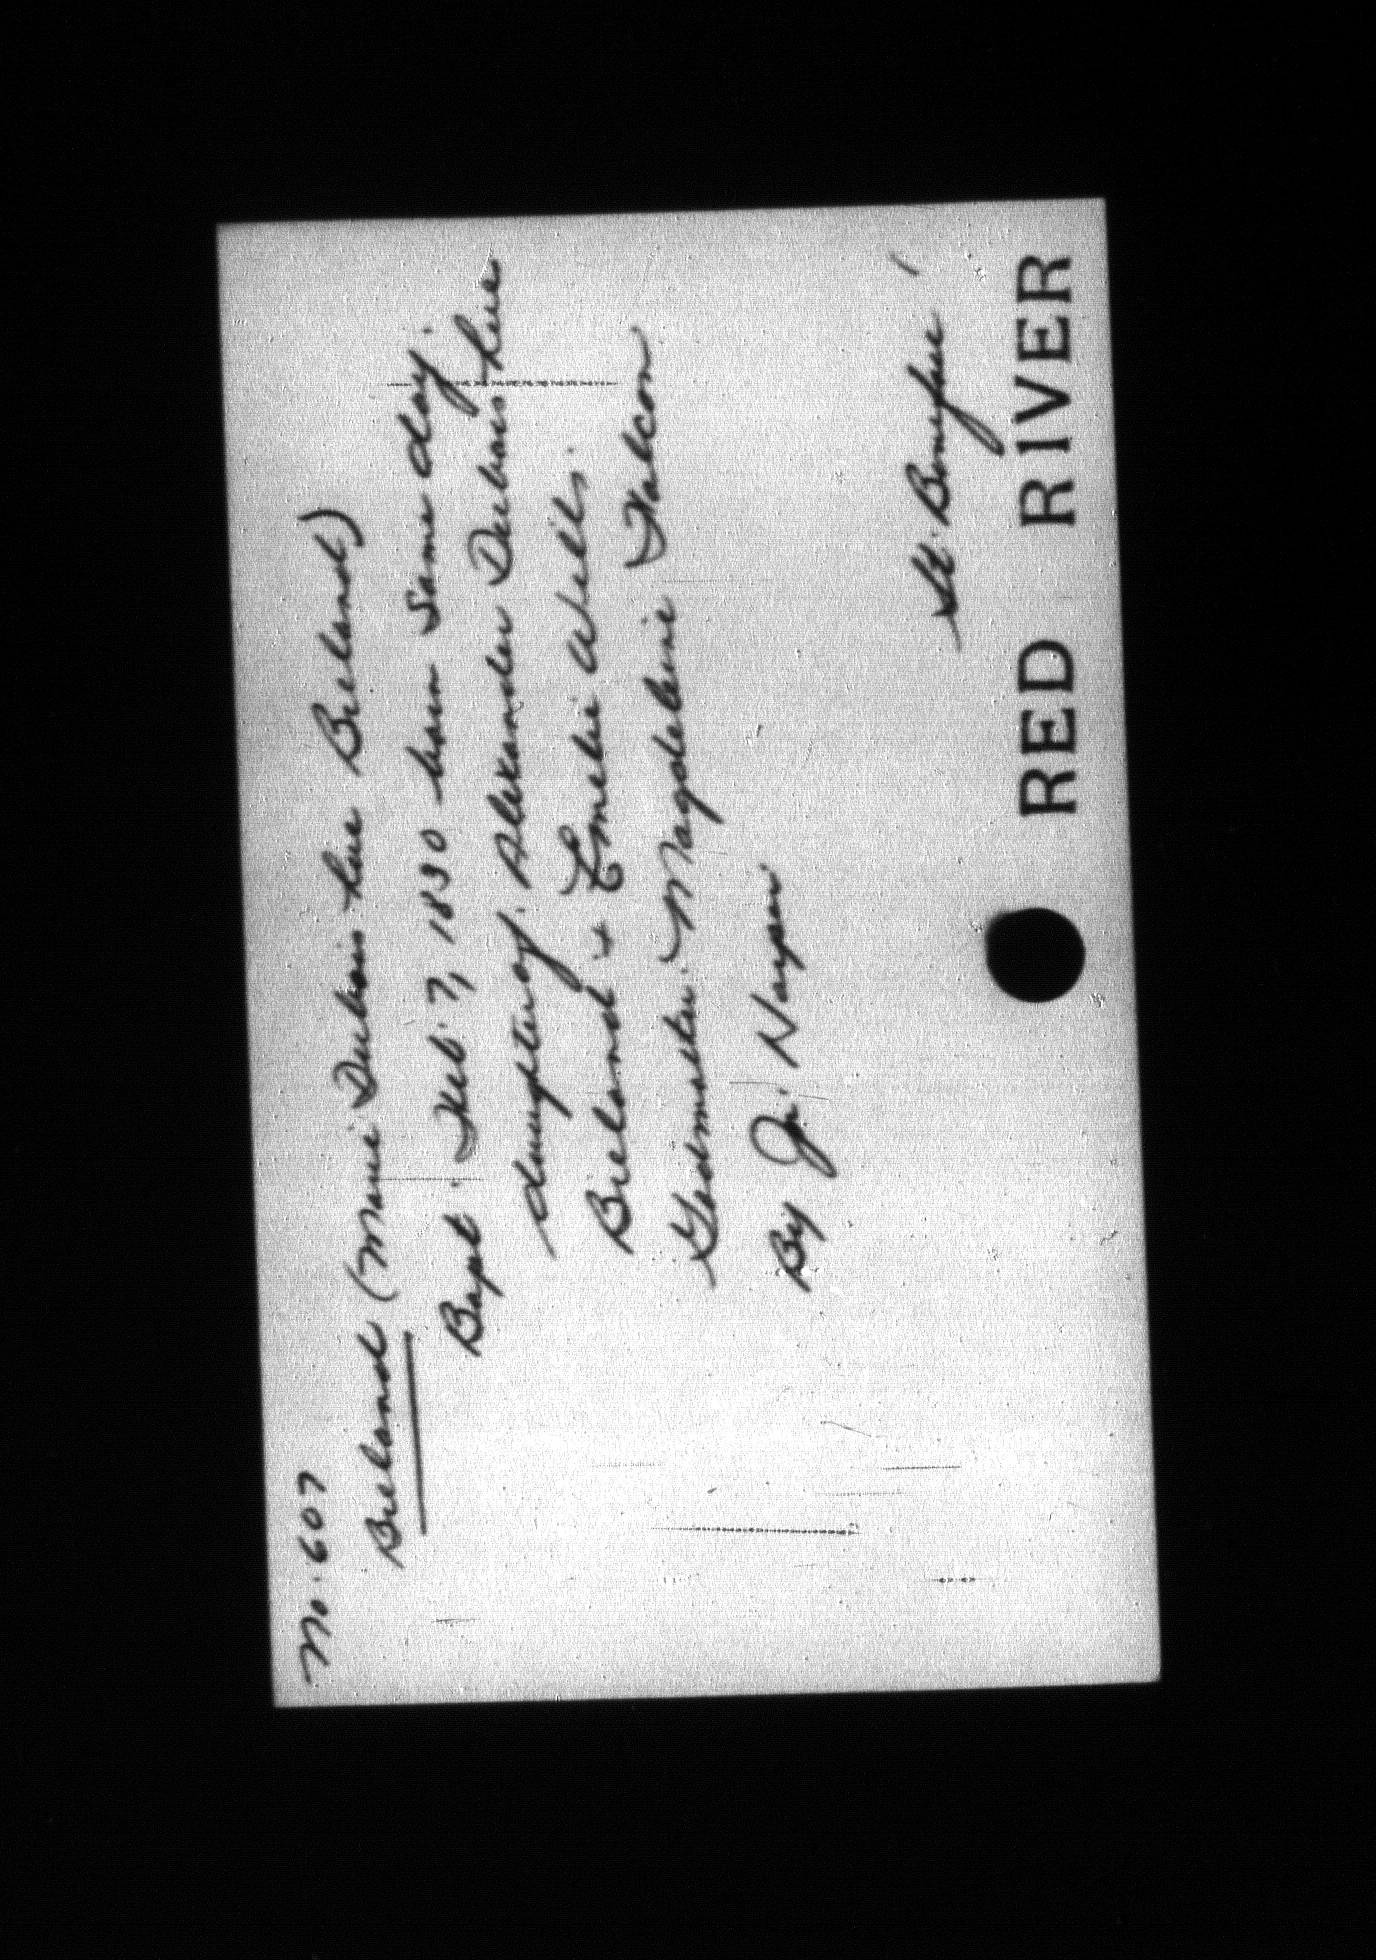 No. 607
Breland (Marie Dubois dite Breland)
Bapt. Feb. 7, 1830 born same day.
daughter of Alexander Dubois dite
Breland & Emelie Wells.
Godmother Magdeleine Falcon
By Jr. Harper
St. Boniface
RED RIVER